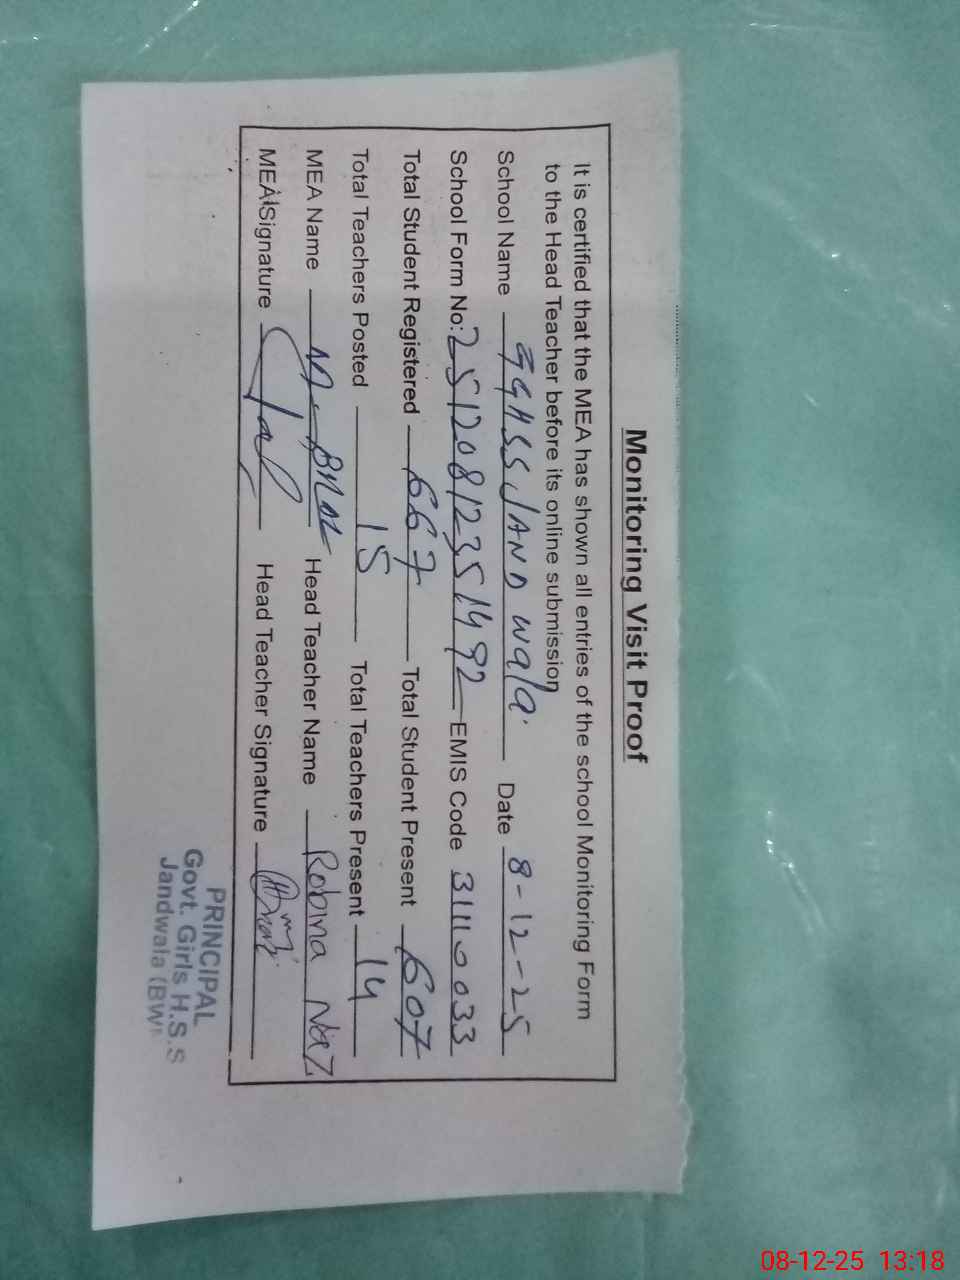 Monitoring Visit Proof
It is certified that the MEA has shown all entries of the school Monitoring Form
to the Head Teacher before its online submission
School Name GGHSS JAND Wala Date 8-12-25
School Form No: 25120812351492 EMIS Code 31110033
Total Student Registered 667 Total Student Present 607
Total Teachers Posted 15 Total Teachers Present 14
MEA Name Head Teacher Name Robina Naz
MEA Signature Head Teacher Signature
PRINCIPAL
Govt. Girls H.S.S
Jandwala (BWP
08-12-25 13:18